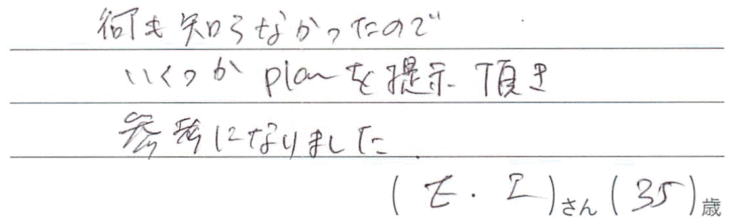 何も知らなかったので
いくつかplanを提示頂き
参考になりました
(E.I)さん(35)歳